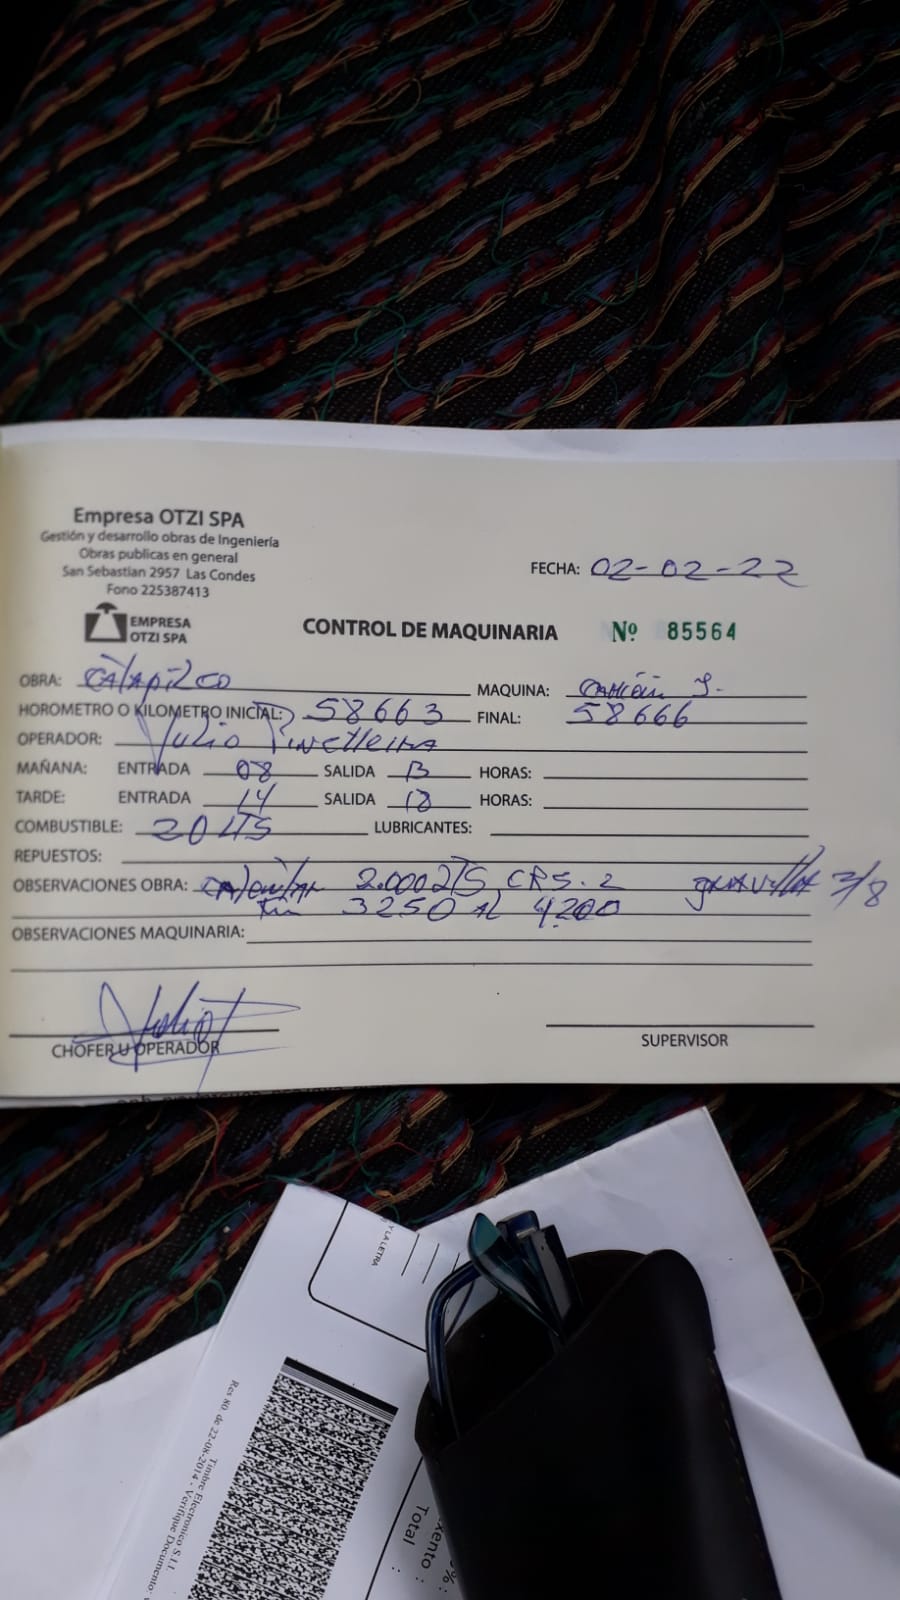 Empresa OTZI SPA
Gestión y desarrollo obras de Ingeniería
Obras publicas en general
San Sebastian 2957 Las Condes
Fono 225387413
EMPRESA
OTZI SPA
FECHA: 02-02-22
CONTROL DE MAQUINARIA Nº 85564
OBRA: Catapilco MAQUINA: CAMIÓN
HOROMETRO O KILOMETRO INICIAL: 58663 FINAL: 58666
OPERADOR: Julio
MAÑANA: ENTRADA 08 SALIDA 13 HORAS:
TARDE: ENTRADA 14 SALIDA 18 HORAS:
COMBUSTIBLE: 20 LTS LUBRICANTES:
REPUESTOS:
OBSERVACIONES OBRA: Calentar CRS. 2 gravilla 3/8
3250 AL 4200
OBSERVACIONES MAQUINARIA:
CHOFER U OPERADOR
SUPERVISOR
Y LA LETRA
Res 80. de 22-08-2014 . Verifique Documento:
Timbre Electronico S.I.I.
Total :